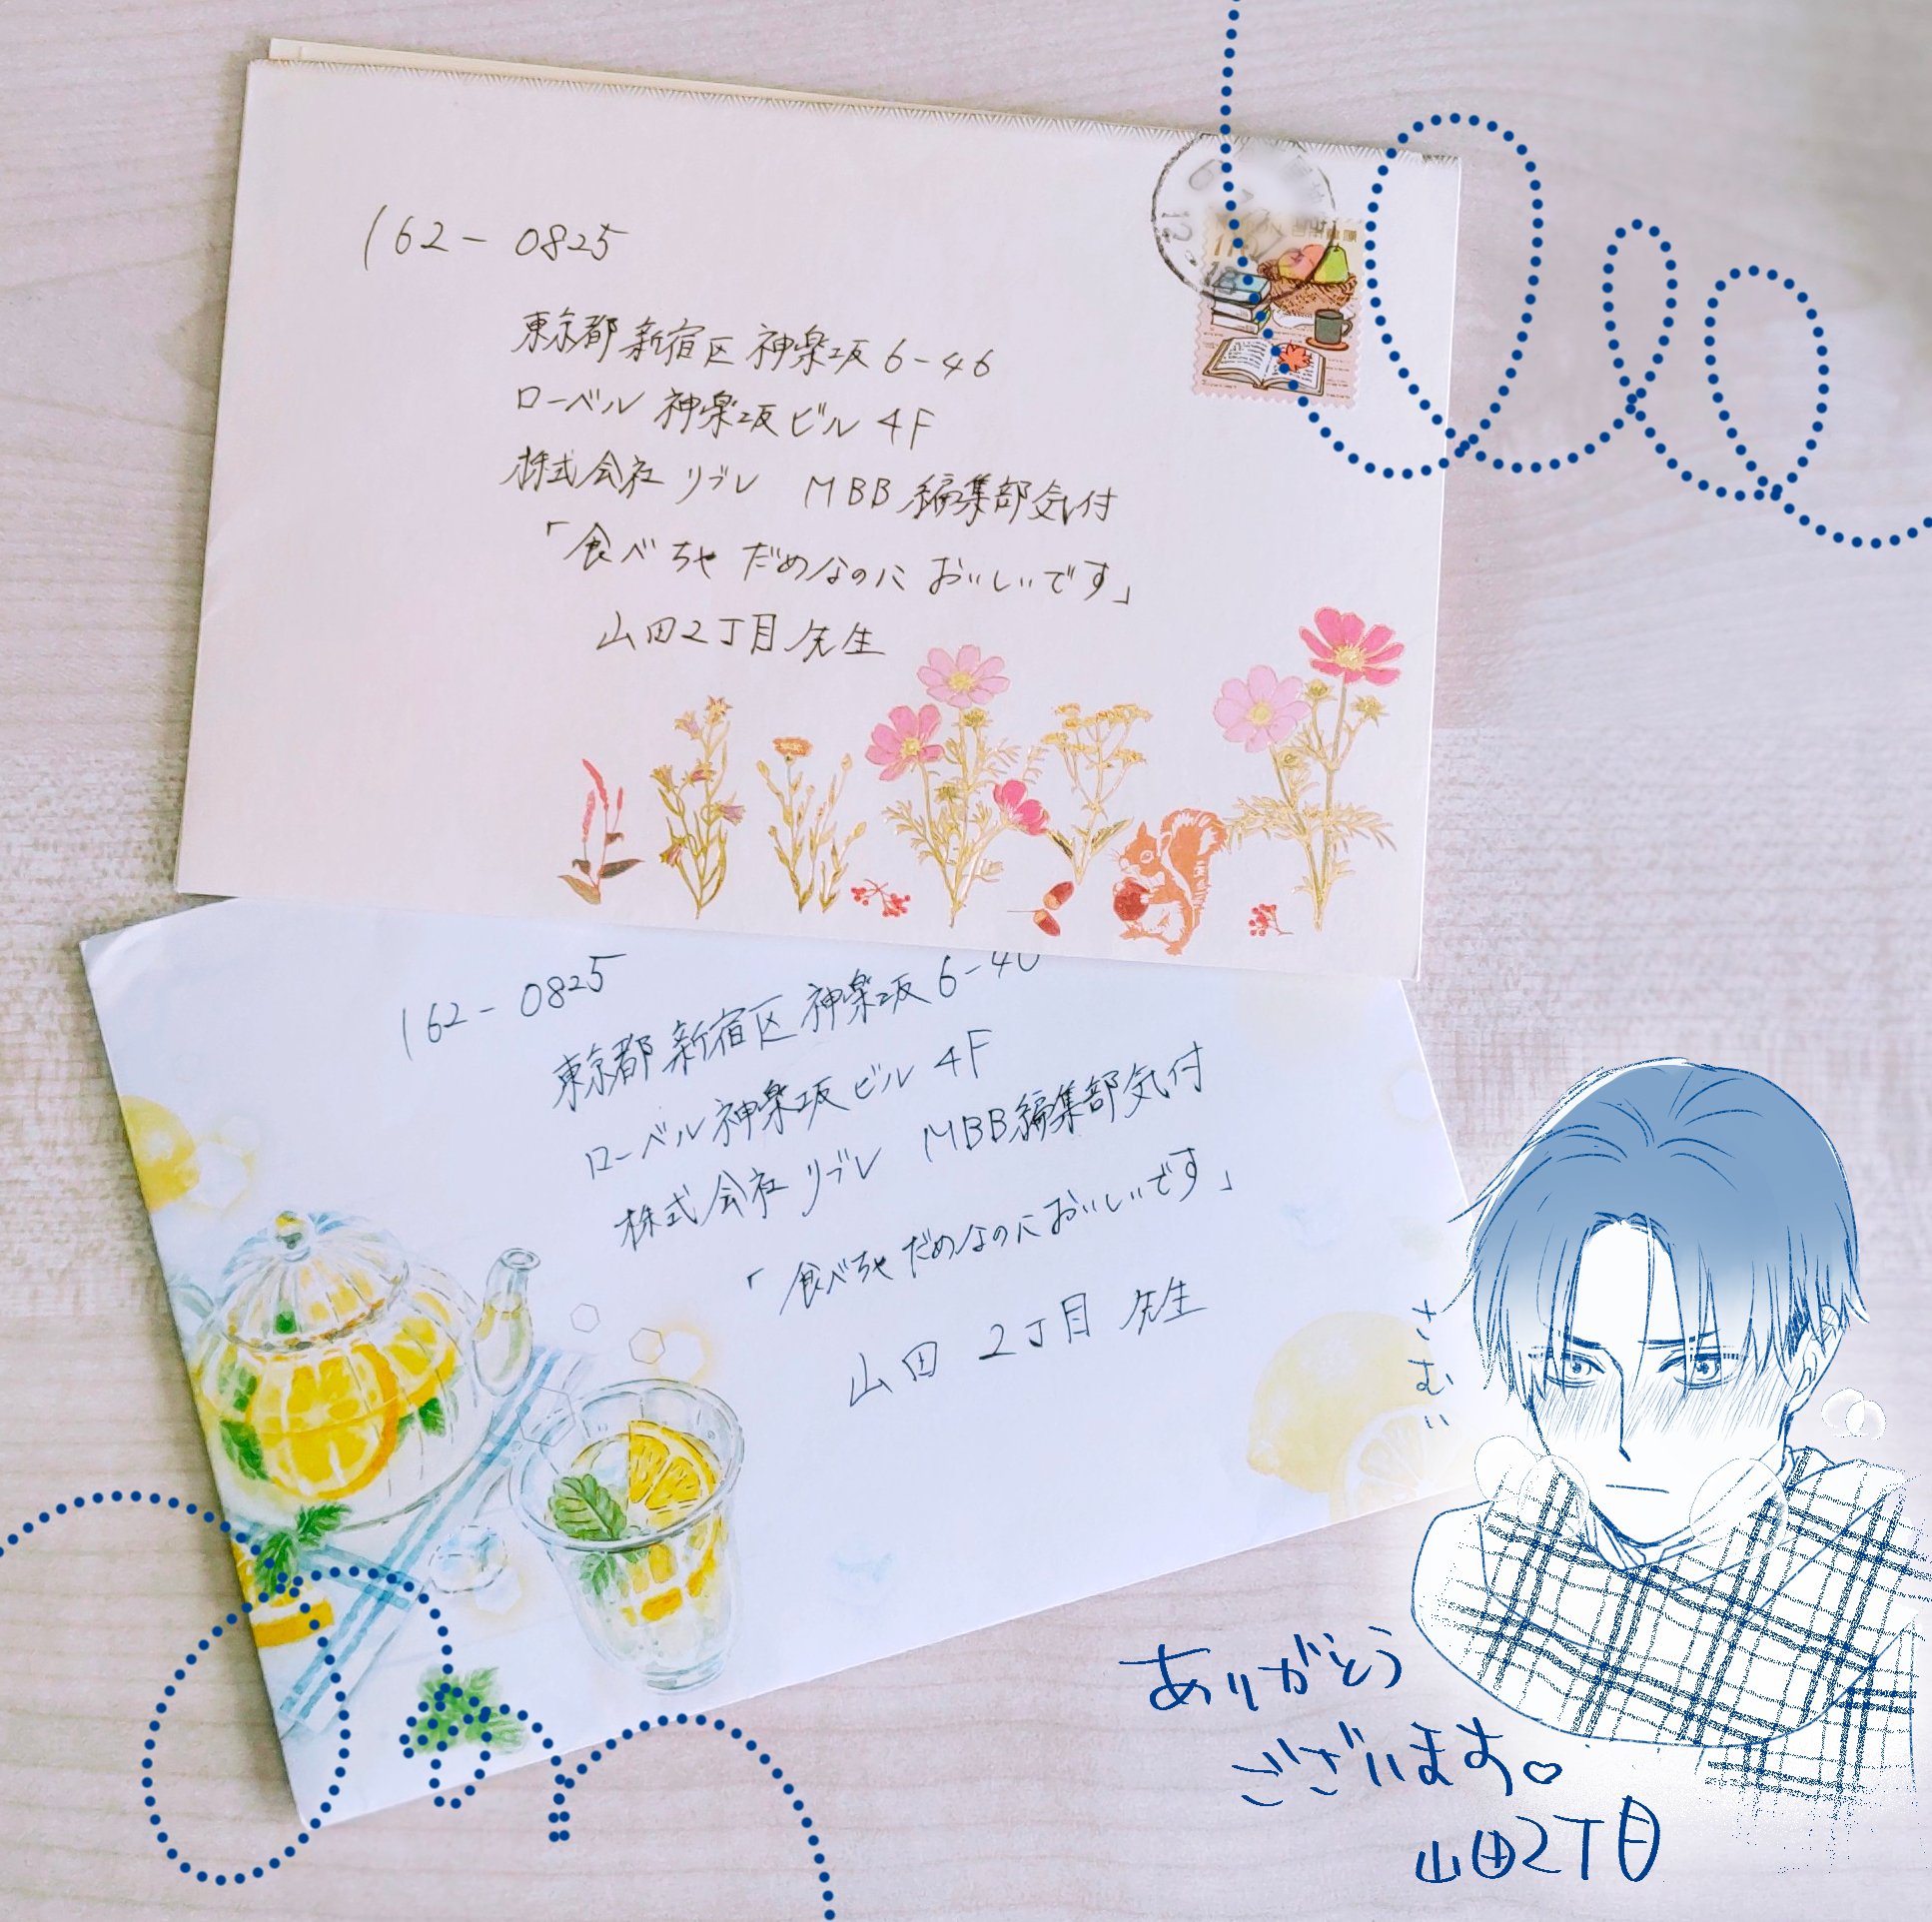 162-0825
東京都新宿区神楽坂6-46
ローベル神楽坂ビル4F
株式会社リブレ MBB編集部気付
「食べちゃだめなのにおいしいです」
山田2丁目先生
162-0825
東京都新宿区神楽坂6-4
ローベル神楽坂ビル4F
株式会社リブレ MBB編集部気付
「食べちゃだめなのにおいしいです」
山田 2丁目 先生
さむい
ありがとう
ございます。♡
山田2丁目